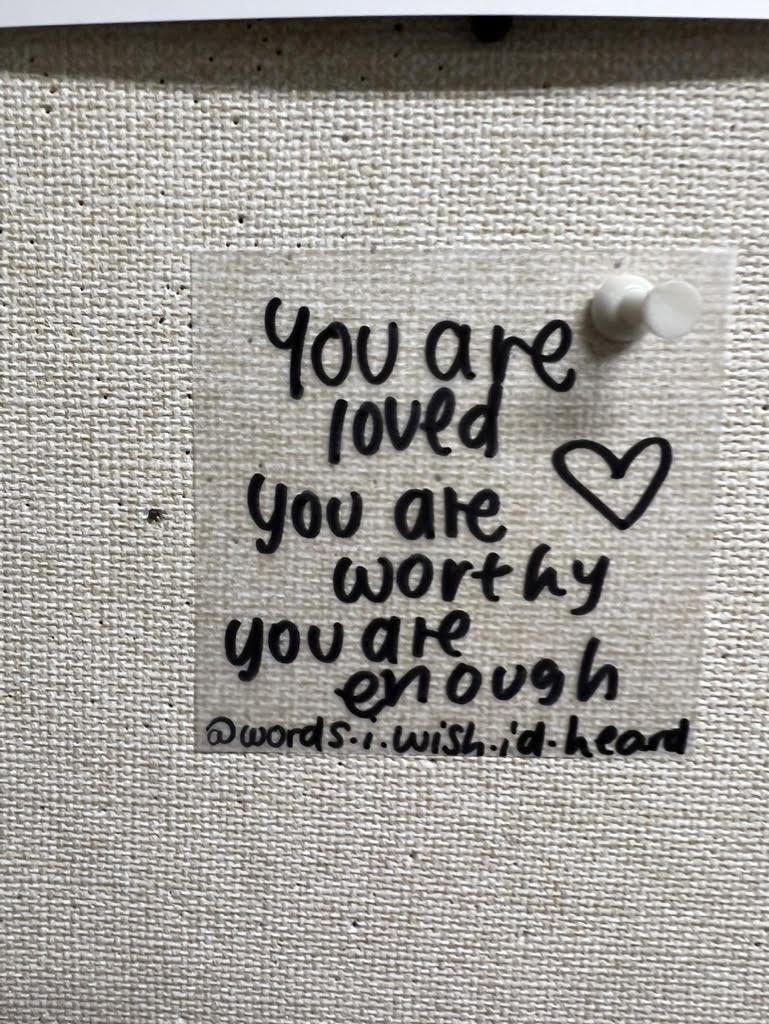 you are
loved
you are
worthy
you are
enough
@words.i.wish.i'd.heard